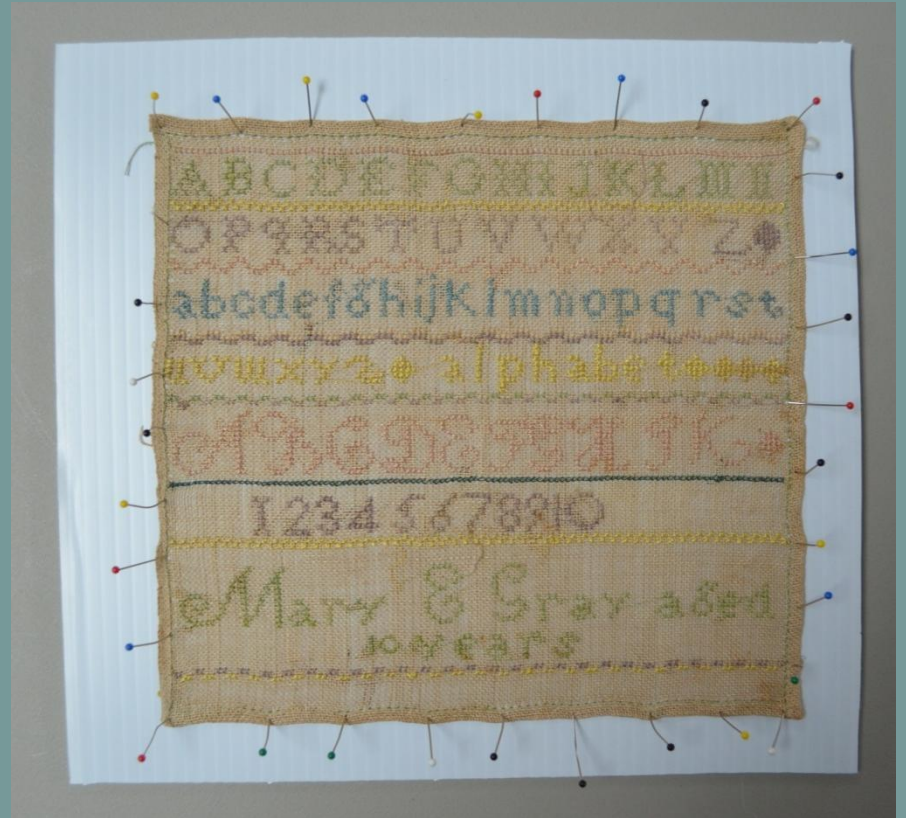 A B C D E F G H I J K L M N
O P Q R S T U V W X Y Z
a b c d e f g h i j k l m n o p q r s t
u v w x y z alphabet
A B C D E F G H I J K
1 2 3 4 5 6 7 8 9 10
Mary E Gray aged
10 years